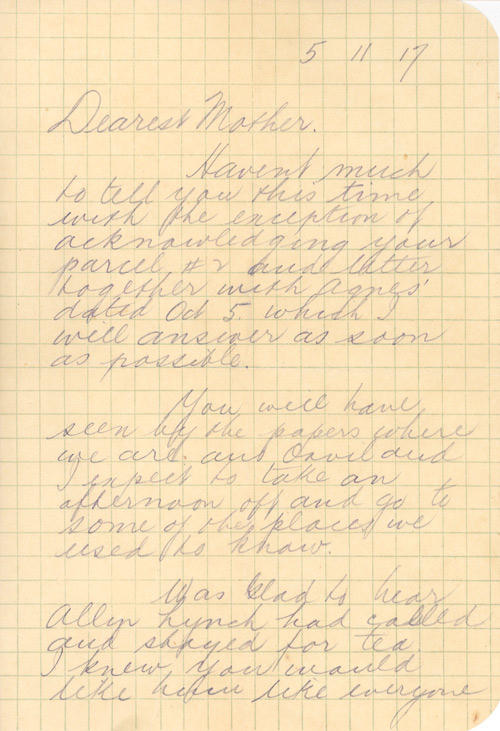 5 11 17
Dearest Mother.
Havent much
to tell you this time
with the exception of
acknowledging your
parcel #2 and letter
together with Agnes'
dated Oct 5. which I
will answer as soon
as possible.
You will have
seen by the papers where
we are. and and
I expect to take an
afternoon off and go to
some of the places we
used to know.
Was glad to hear
Allyn Lynch had called
and stayed for tea.
I knew you would
like him like everyone